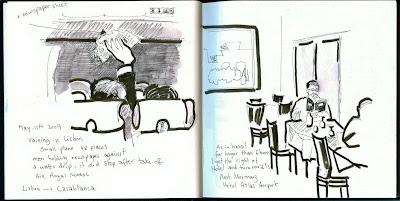 + newspaper sheet
May 11th 2009
raining in Lisbon
small plane 48 places
men holding newspaper against
a water drip, it did stop after take off
Air Royal Maroc
Lisbon → Casablanca
As in transit
for longer than 6 hours
I get the right of
Hotel and two meals
Hotel Atlas Airport